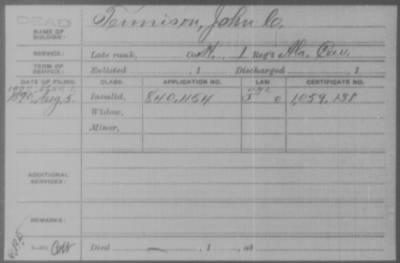 DEAD
NAME OF SOLDIER: Tennison, John C.
SERVICE: Late rank, Co. H, 1 Reg't Ala. Cav.
TERM OF SERVICE: Enlisted , 1 Discharged , 1
DATE OF FILING. CLASS. APPLICATION NO. LAW. CERTIFICATE NO.
1890 Aug. 5. Invalid, 840,454 1,059,138
Widow,
Minor,
ADDITIONAL SERVICES:
REMARKS:
Died — , 1 , at